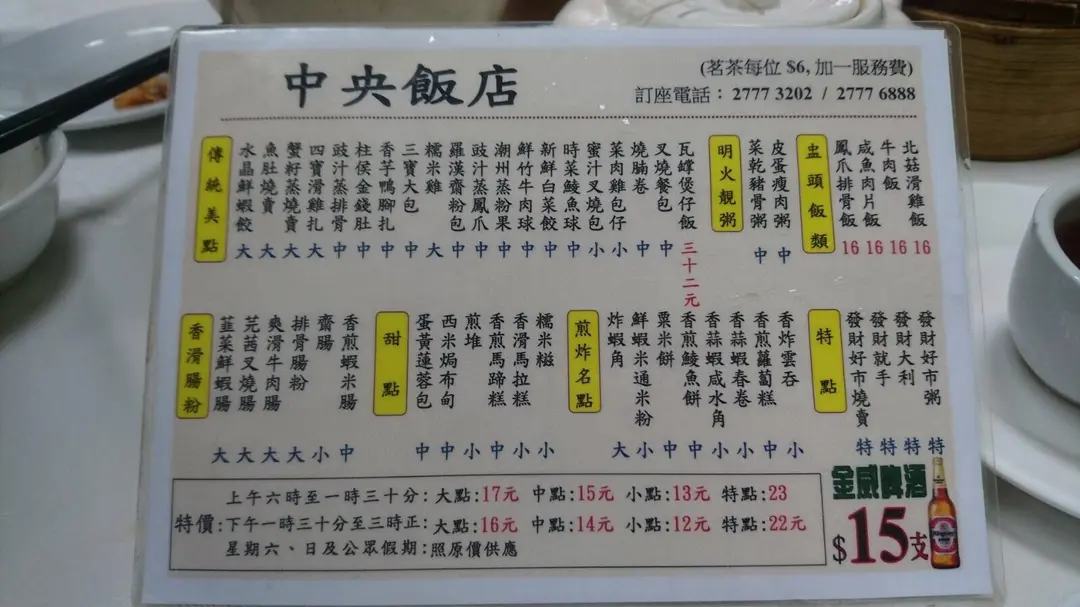 中央飯店
(茗茶每位 $6, 加一服務費)
訂座電話： 2777 3202 / 2777 6888
傳統美點
水晶鮮蝦餃 大
魚肚燒賣 大
蟹籽蒸燒賣 大
四寶滑雞扎 大
豉汁蒸排骨 中
柱侯金錢肚 中
香芋鴨腳扎 中
三寶大包 中
糯米雞 大
羅漢齋粉包 中
豉汁蒸鳳爪 中
潮州蒸粉果 中
鮮竹牛肉球 中
新鮮白菜餃 中
時菜鯪魚球 中
蜜汁叉燒包 小
菜肉雞包仔 小
燒腩卷 中
叉燒餐包 中
瓦罉煲仔飯 三十二元
明火靚粥
菜乾豬骨粥 中
皮蛋瘦肉粥 中
盅頭飯類
鳳爪排骨飯 16
咸魚肉片飯 16
牛肉飯 16
北菇滑雞飯 16
香滑腸粉
韮菜鮮蝦腸 大
芫茜叉燒腸 大
爽滑牛肉腸 大
排骨腸粉 大
齋腸 小
香煎蝦米腸 中
甜點
蛋黃蓮蓉包 中
西米焗布甸 中
煎堆 小
香煎馬蹄糕 中
香滑馬拉糕 小
糯米糍 小
煎炸名點
炸蝦角 大
鮮蝦米通米粉 小
粟米餅 中
香煎鯪魚餅 中
香蒜蝦咸水角 小
香蒜蝦春卷 小
香煎蘿蔔糕 中
香炸雲吞 小
特點
發財好市燒賣 特
發財就手 特
發財大利 特
發財好市粥 特
特價:
上午六時至一時三十分: 大點:17元 中點:15元 小點:13元 特點:23
下午一時三十分至三時正: 大點:16元 中點:14元 小點:12元 特點:22元
星期六、日及公眾假期: 照原價供應
金威啤酒
$15支